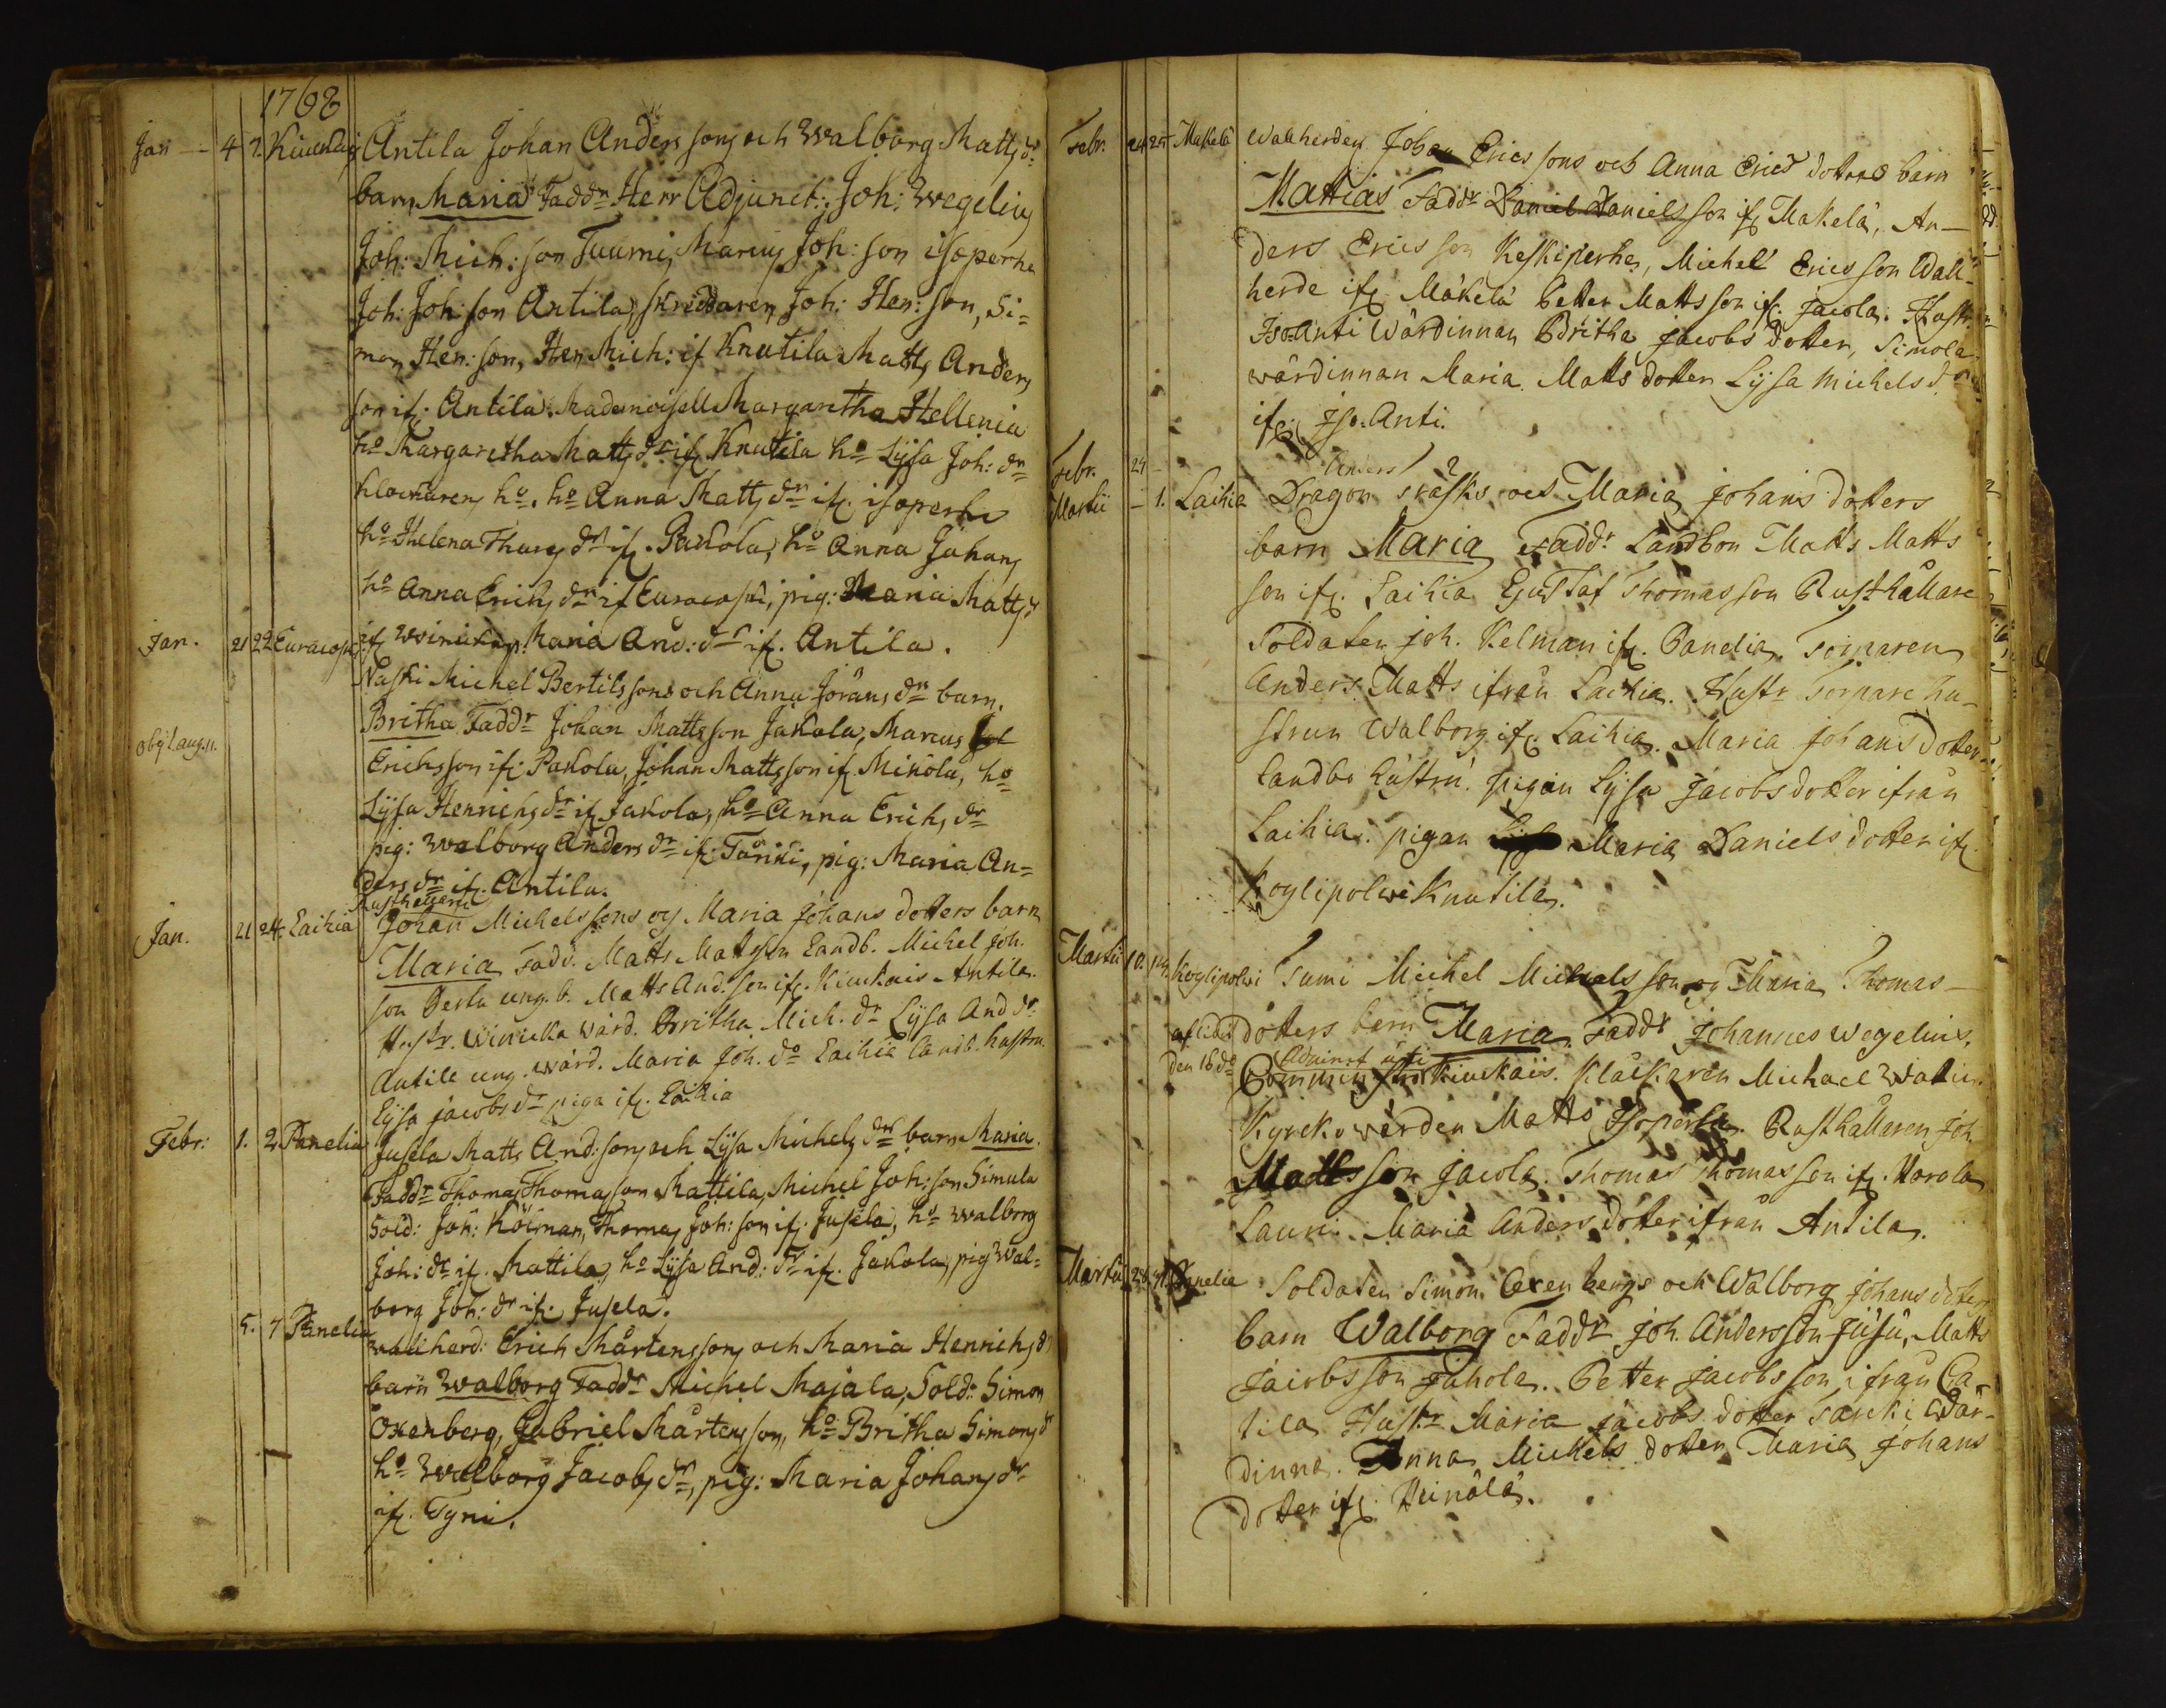 1768
Jan — 4 7. Antila Johan Anders sons och Walborg Matts dr
barn Maria Faddr Herr Adjunct: Joh: Wegelius
Joh: Mich: son Tuumi, Marcus Joh: son isoperhe
Joh: Joh: son Antila, skreddaren Joh: Hen: son, Si=
mon Hen: son, Hen Mich: if Knutila Matts Anders
son if: Antila. Mademoisell Margaretha Hellenia
ho Margaretha Matts dr if Knutila ho Lysa Joh: dr
klockarens ho. ho Anna Matts dr if. isoperhe
ho Helena dr if. Pakola, ho Anna Johans
ho Anna Erichs dr if Euracoski, pig: Maria Matts dr
Jan. 21 22 Euracoski if Winicka p. Maria And: dr if. Antila.
Naski Michel Bertils sons och Anna Jörans dr barn.
Britha Faddr Johan Matts son Jakola, Marcus
obijt. aug. 11.
Erichsson if: Pakola, Johan Matts son if. Mikola, ho
Lysa Henrichs dr if. Jakola, ho Anna Erichs dr
pig: Walborg Anders dr if: , pig: Maria An=
ders dr if. Antila.
Rusthållaren
Jan. 21 24. Laihia Johan Michels sons og Maria Johans dotters barn
Maria Fadd. Matts Matsson Landb. Michel Joh.
son ung. b. Matts And. son if. Kiuckais Antila.
Hustr. Winicka wärd. Britha Mich. dr Lysa And dr
Antila ung. wärd. Maria Joh. do Laihia Landb. hustru
Lysa Jacobs dr piga if. Laihia
Febr: 1. 2. Panelia Jusela Matts And: sons och Lysa Michels drs barn Maria.
Faddr Thomas Thomas son Mattila, Michel Joh: son Simula
Sold: Joh: Kölman, Thomas Joh: son if. Jusela, ho Walborg
Joh: dr if. Mattila, ho Lysa And: dr if. Jakola, pig Wal=
borg Joh: dr if. Jusela.
5. 7 Panelia wallherd: Erich Mårtens sons och Maria Henrichs dr
barn Walborg Faddr Michel Majala, Sold: Simon
Oxenberg, Gabriel Mårtens son, ho Britha Simons dr
ho Walborg Jacobs dr, pig: Maria Johans dr
if. Tyni.
Febr. 24 25 Makelä Wallherden Johan Erics sons och Anna Erics dotters barn
Mattias Faddr Daniel Daniels son if Makelä, An—
ders Erics son Keskiperhes, Michel Erics son Wall-
herde if. Mäkelä Petter Matts son if. Jacola. Hustr.
Iso-Anti Wärdinnan Britha Jacobs dotter, Simola
wärdinnan Maria Matts dotter Lysa Michels d.
if. Iso. Anti.
Anders
Febr. 29
Martii — 1. Laihia Dragon Rask och Maria Johans dotters
barn Maria Faddr. Landbon Matts Matts
son if. Laihia Gustaf Thomas son Rusthållare
Soldaten Joh. Kelman if. Panelia. Torparen
Anders Matts ifrån Laihia. Hustr Torpare hu-
strun Walborg if. Laihia. Maria Johans dotter
Landbo hustru. Pigan Lysa Jacobs dotter ifrån
Laihia. pigan Maria Daniels dotter if.
Köylipolwi Knutila.
Martii 10. Köylipolwi Tumi Michel Michaels son og Maria Thomas—
aflidit dotters barn Maria. Faddr Johannes Wegelius,
den 16 do
Adjunct uti
Kiuckais. Klåckaren Michael Walin
Kyrckowärden Matts Isoperhe. Rusthållaren Joh
Matts son Jacola. Thomas Thomas son if. Horola
Lauri. Maria Anders dotter ifrån Antila.
Martii Panelia Soldaten Simon Oxenbergs och Walborg Johans dotters
barn Walborg Faddr Joh. Anders son Jusu, Matts
Jacobs son Jakola. Petter Jacobs son ifrån Ca-
tila Hustr Maria Jacobs dotter Tancki Wär-
dinna. Anna Michels dotter Maria Johans
dotter if. Heinälä.